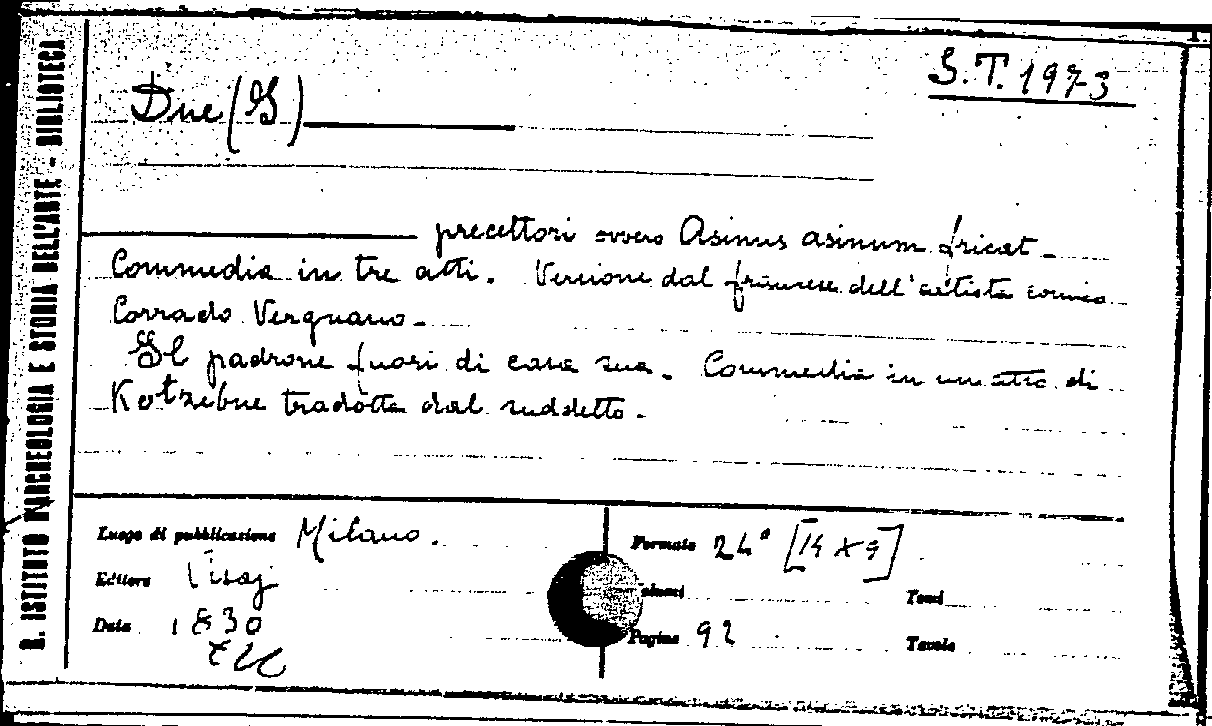 S.T. 1973
Due (I)
precettori ovvero Asinus asinum fricat.
Commedia in tre atti. Versione dal francese dell'artista comico
Corrado Vergnano.
Il padrone fuori di casa sua. Commedia in un atto di
Kotzebue tradotta dal suddetto.
R. ISTITUTO D'ARCHEOLOGIA E STORIA DELL'ARTE - BIBLIOTECA
Luogo di pubblicazione Milano.
Formato 24° [14 x 9]
Editore Visaj
Tomi
Data 1830
Pagine 92
Tavole